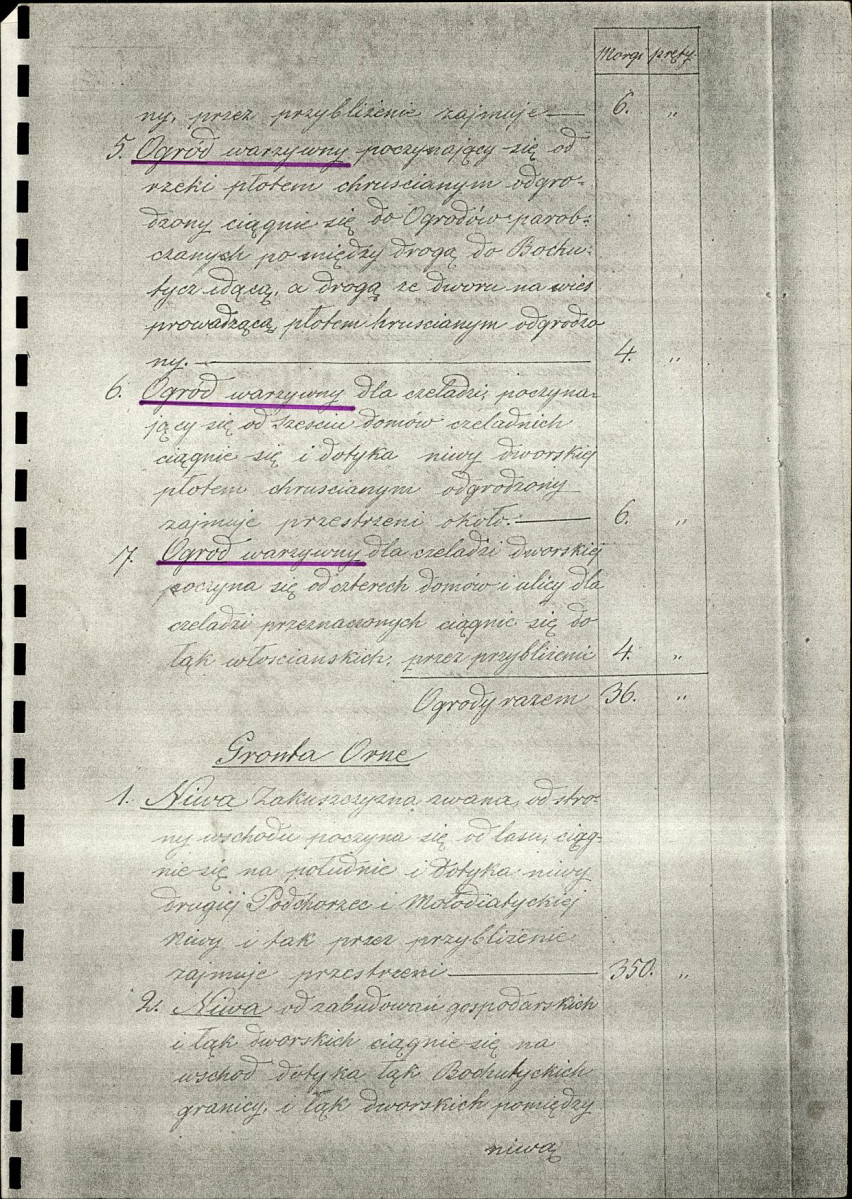 Morgi pręty.
ny, przez przybliżenie zajmuje — 6. „
5. Ogród warzywny poczynający się od
rzeki płotem chruscianym odgro-
dzony ciągnie się do Ogrodów parob-
czanych po między drogą do Bochu-
tycz idącą, a drogą ze dworu na wieś
prowadzącą, płotem hruscianym odgrodzo
ny. — 4. „
6. Ogród warzywny dla czeladzi, poczyna-
jący się od sześciu domów czeladnich
ciągnie się i dotyka niwy dworskiej
płotem chruscianym odgrodzony
zajmuje przestrzeni około. — 6. „
7. Ogród warzywny dla czeladzi dworskiej
poczyna się od czterech domów i ulicy dla
czeladzi przeznaczonych ciągnie się do
łąk włościańskich, przez przybliżenie 4. „
Ogrody razem 36. „
Gronta Orne
1. Niwa Zakuszczyzną zwana, od stro-
ny wschodu poczyna się od lasu, ciąg-
nie się na południe i dotyka niwy
drugiej Podchorzec i Mołodiatyckiej
Niwy i tak przez przybliżenie
zajmuje przestrzeni — 350. „
2. Niwa od zabudowań gospodarskich
i łąk dworskich ciągnie się na
wschod dotyka łąk Bochutyckich
granicy, i łąk dworskich pomiędzy
niwą